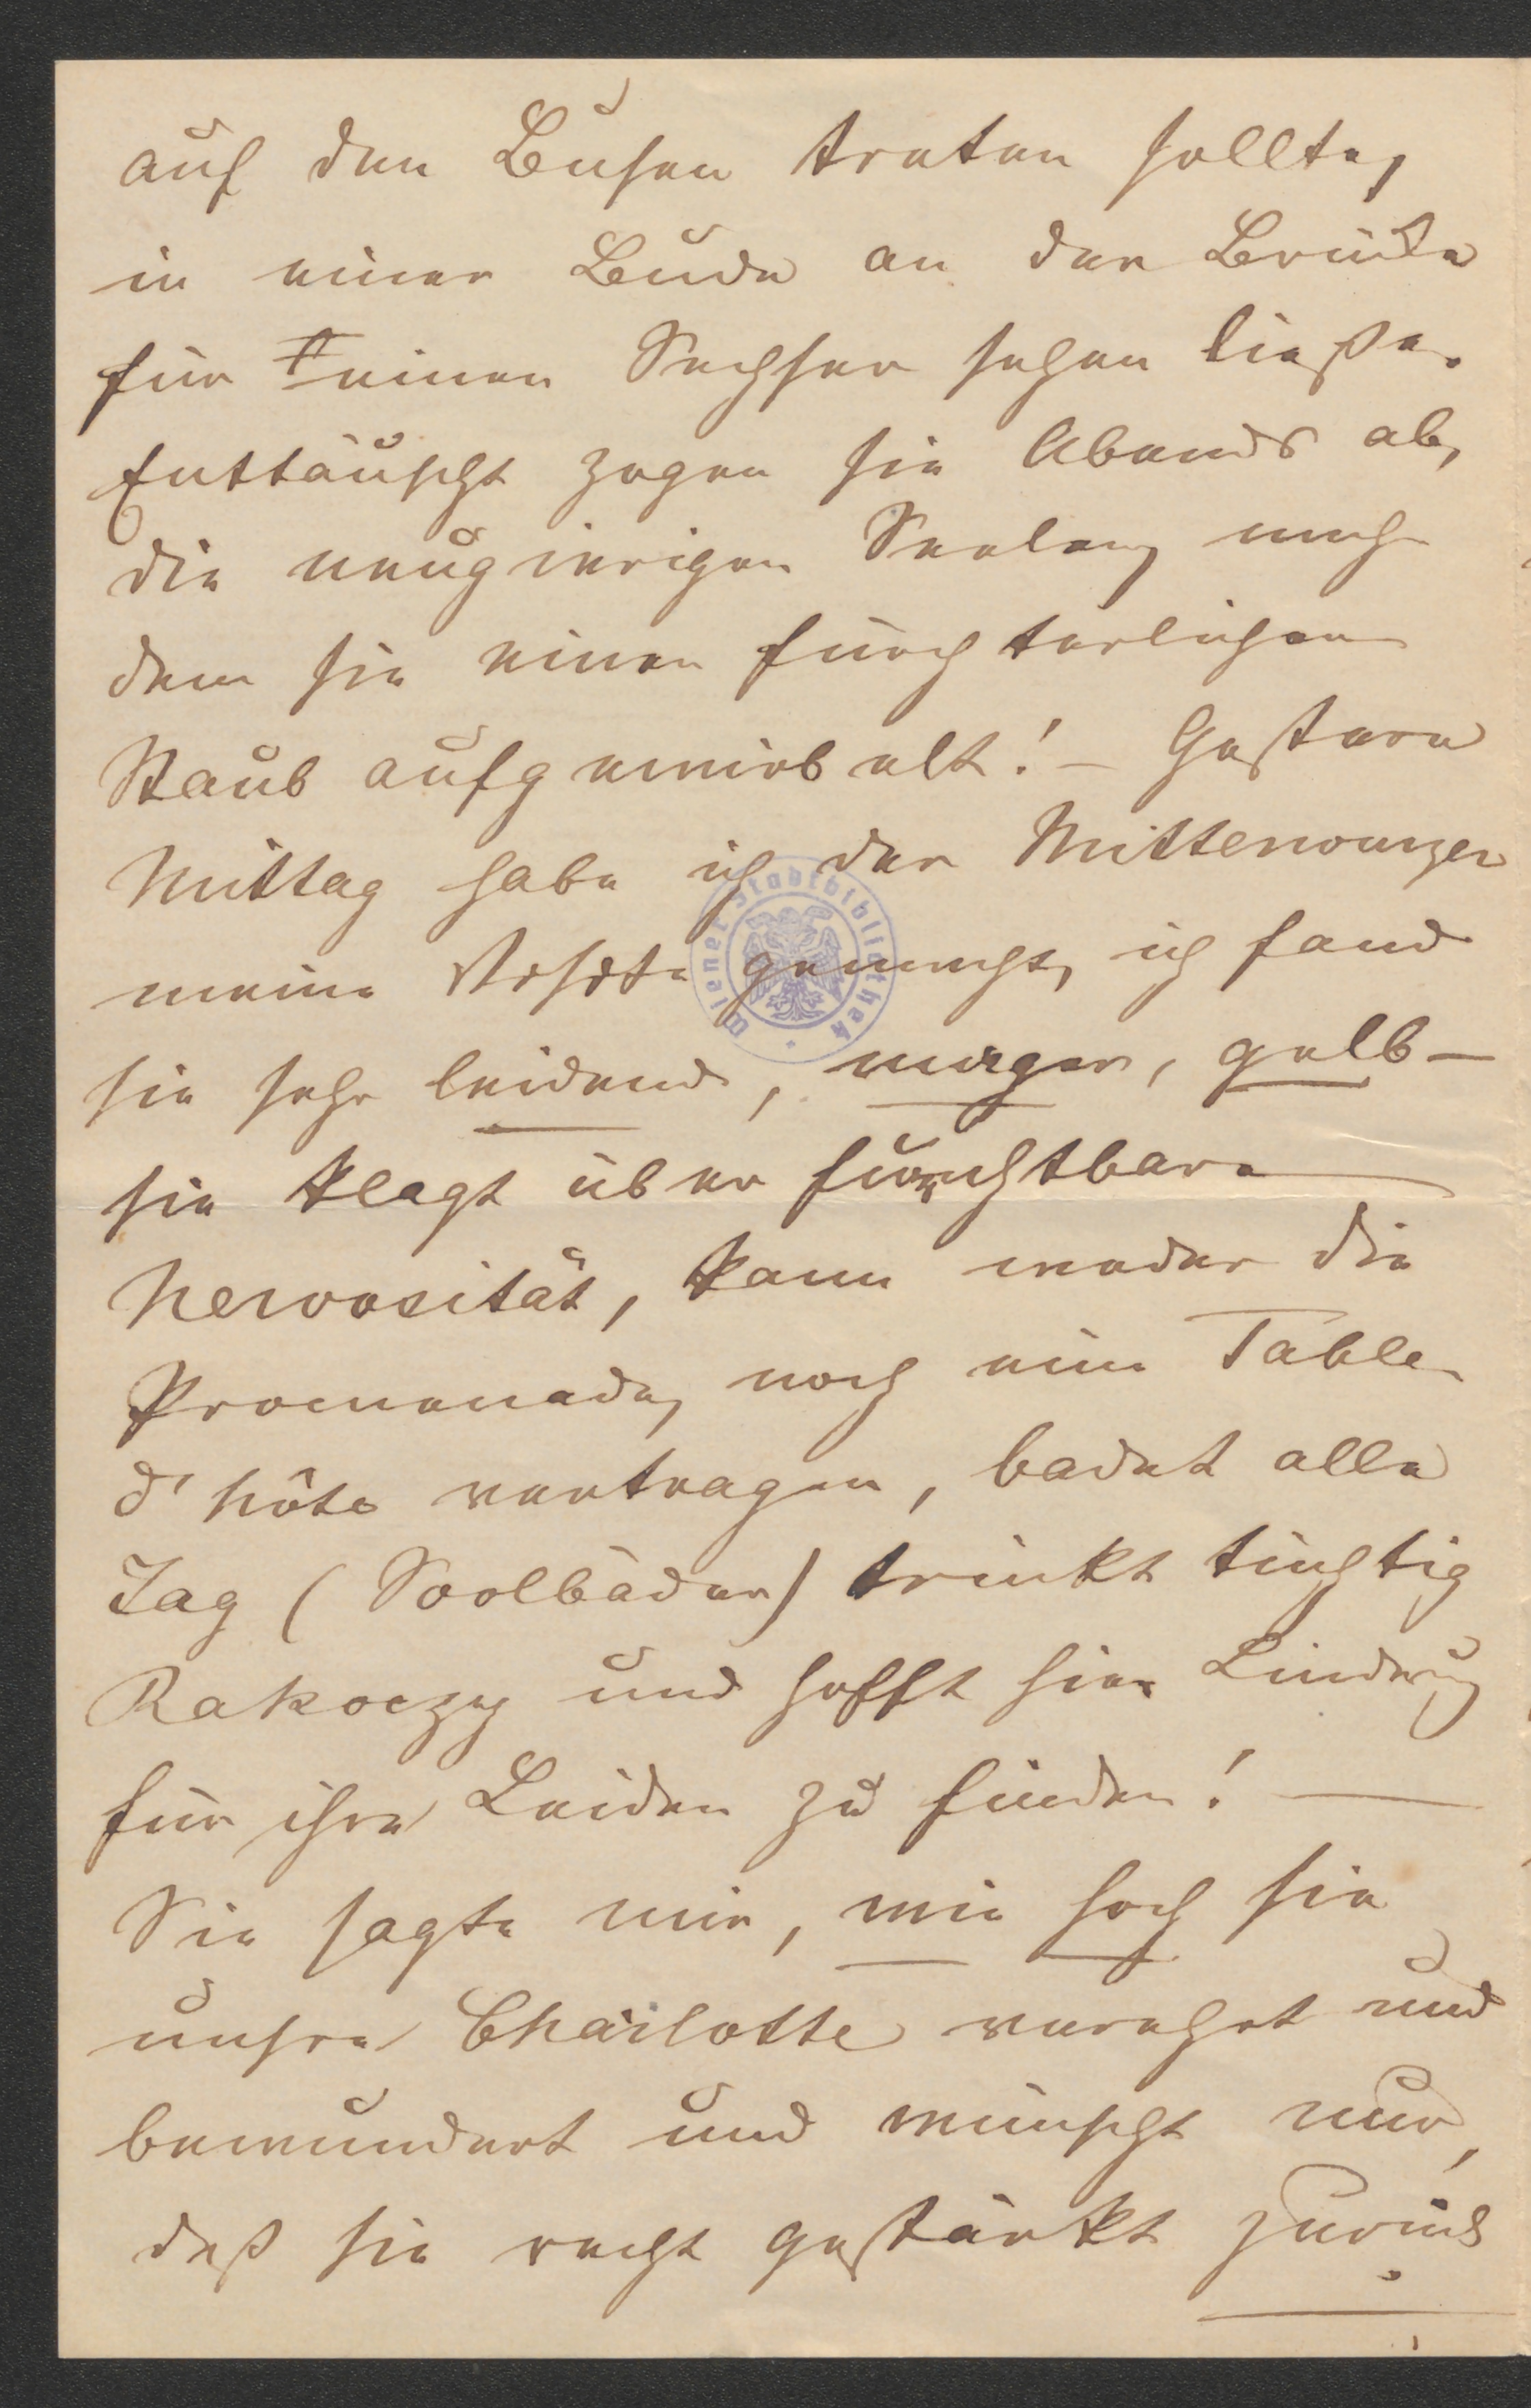 auf den Busen treten sollte,
in einer Bude an der Brücke
für einen Sechser sehen ließe.
Enttäuscht zogen sie Abends ab,
die neugierigen Seelen, nach
dem sie einen fürchterlichen
Staub aufgewirbelt! – Gestern
Mittag habe ich der Mitterwurzer
meine Visite gemacht, ich fand
sie sehr leidend, mager, gelb –
sie klagt über furchtbare
Nervosität, kann weder die
Promenade, noch eine Table
d'hôte vertragen, badet alle
Tag (Soolbäder) trinkt tüchtig
Rakoczy und hofft hier Linderung
für ihre Leiden zu finden! —
Sie sagte mir, wie hoch sie
unsre Charlotte verehrt und
bewundert und wünscht nur,
daß sie recht gestärkt zurück
Wiener Stadtbibliothek